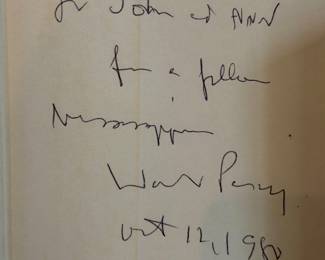 for John and ANN
from a fellow
Mississippian
Walker Percy
Oct 12, 1980